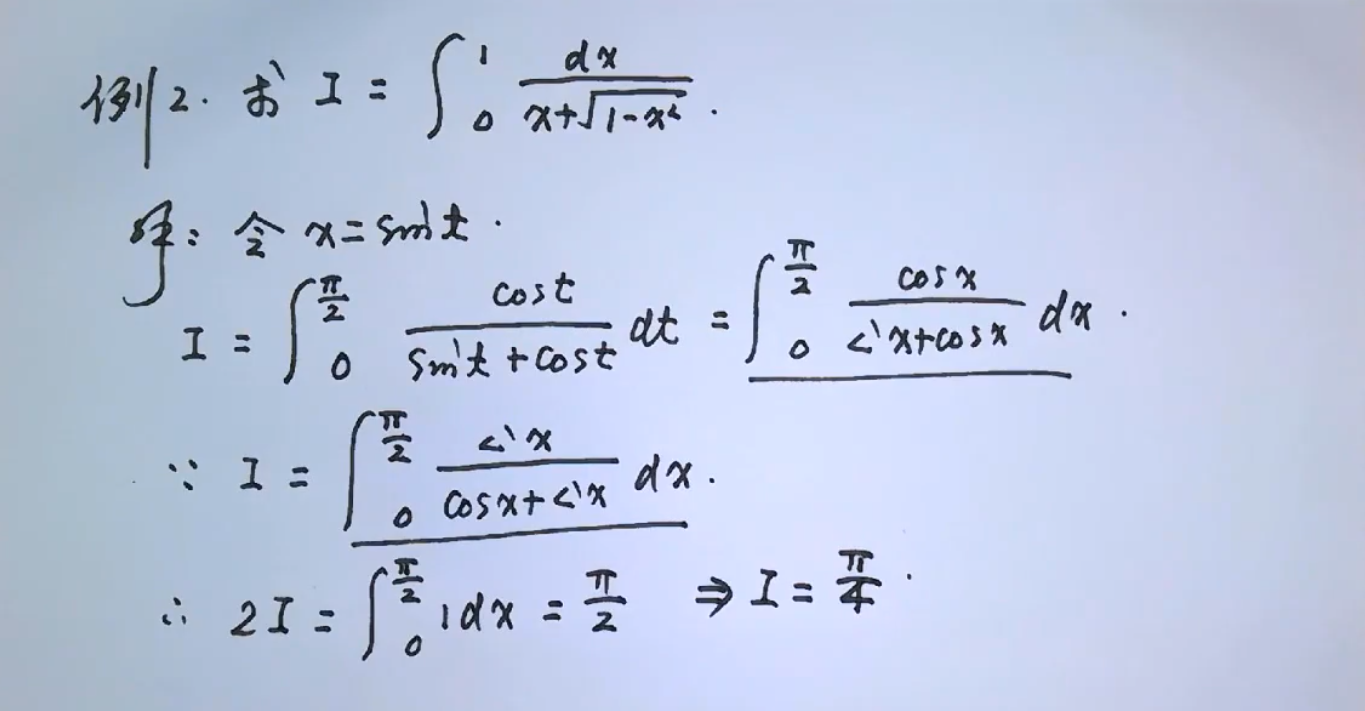 例2. 求 I = ∫₀¹ dx/(x+√(1-x²)).
解: 令 x = sin t.
I = ∫₀^(π/2) cos t/(sin t + cos t) dt = ∫₀^(π/2) cos x/(sin x + cos x) dx.
∵ I = ∫₀^(π/2) sin x/(cos x + sin x) dx.
∴ 2I = ∫₀^(π/2) 1 dx = π/2 ⇒ I = π/4.